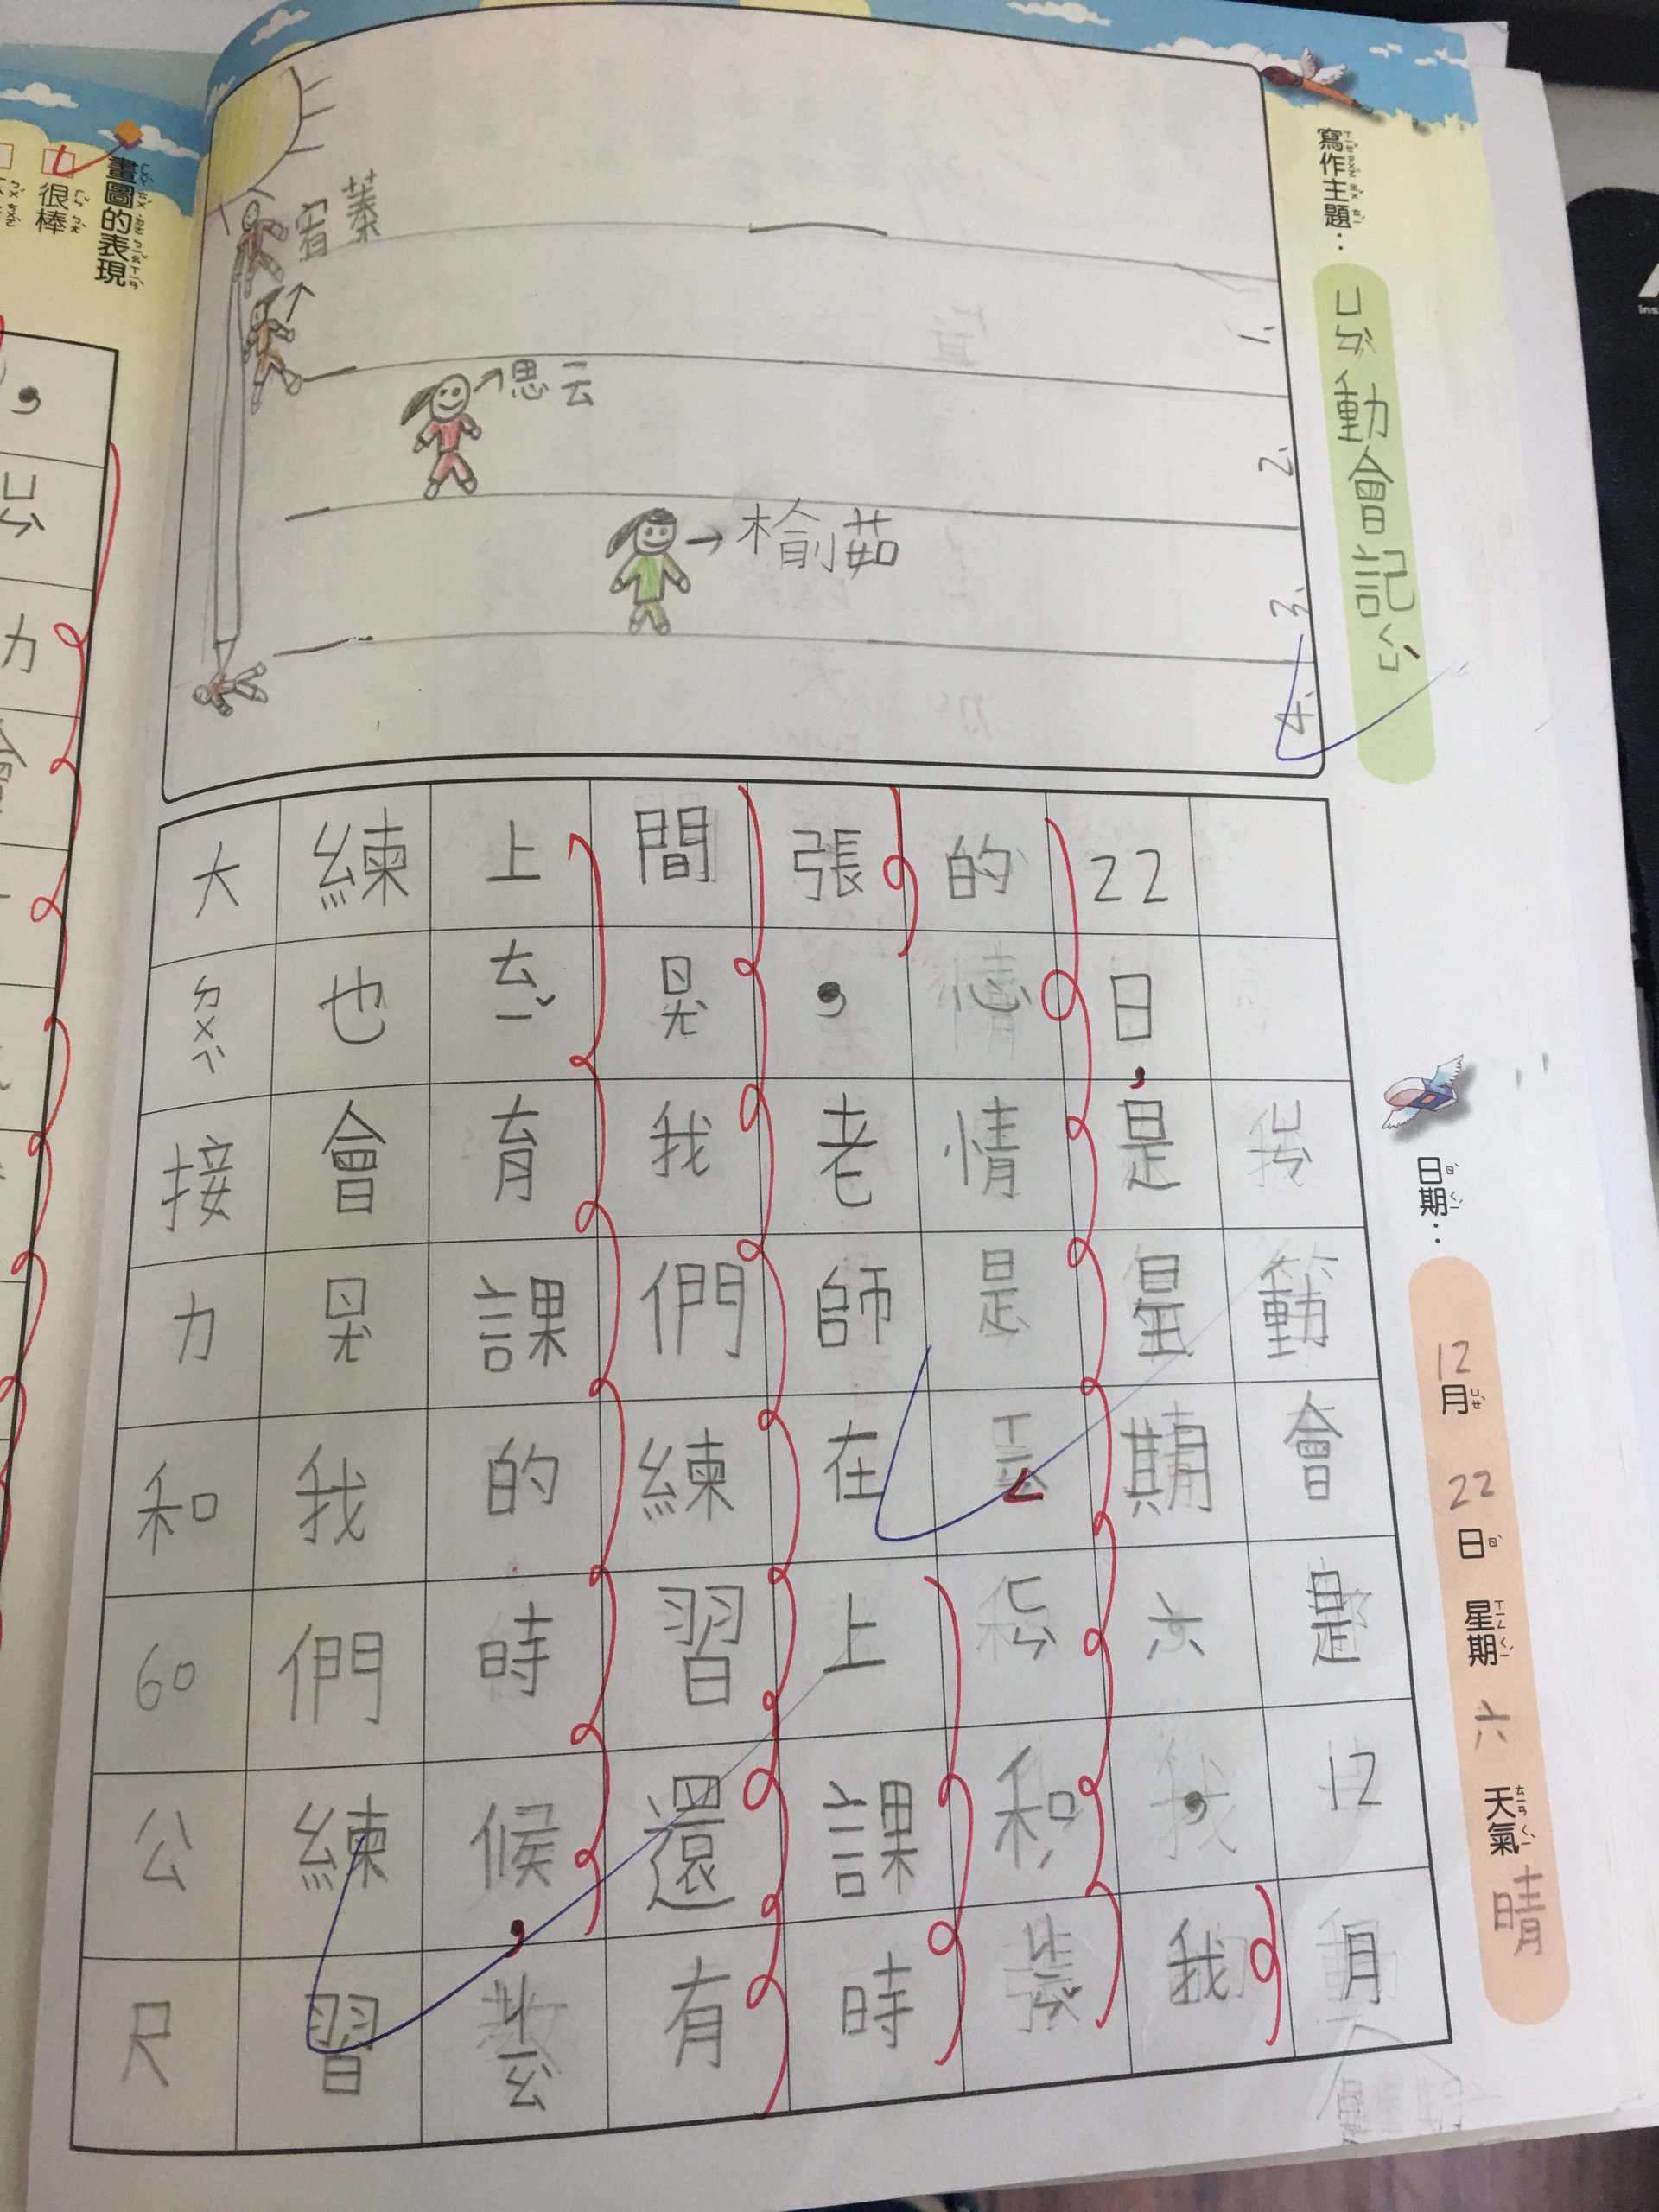 寫作主題：ㄩㄣˋ動會記
日期：12月22日 星期六 天氣晴
1.
2.
3.
4.
宥蓁
思云
榆茹
ㄩㄣˋ動會是12月
22日，是星期六，我
的心情是ㄒㄧㄥㄈㄣˋ和ㄐㄧㄣˇ
張，老師在上課時
間ㄖㄤˋ我們練習還有
上ㄊㄧˇ育課的時候，ㄐㄧㄠ
練也會ㄖㄤˋ我們練習
大ㄉㄨㄟˋ接力和60公尺
畫圖的表現
很棒